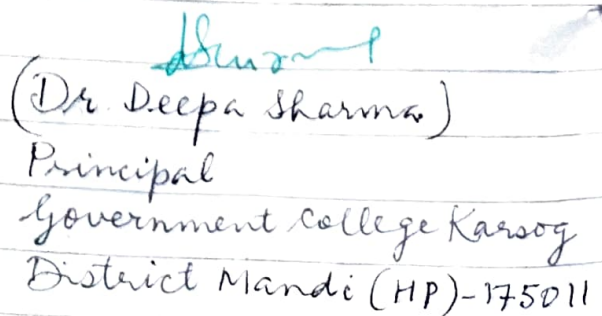 (Dr. Deepa Sharma)
Principal
Government College Karsog
District Mandi (HP)-175011